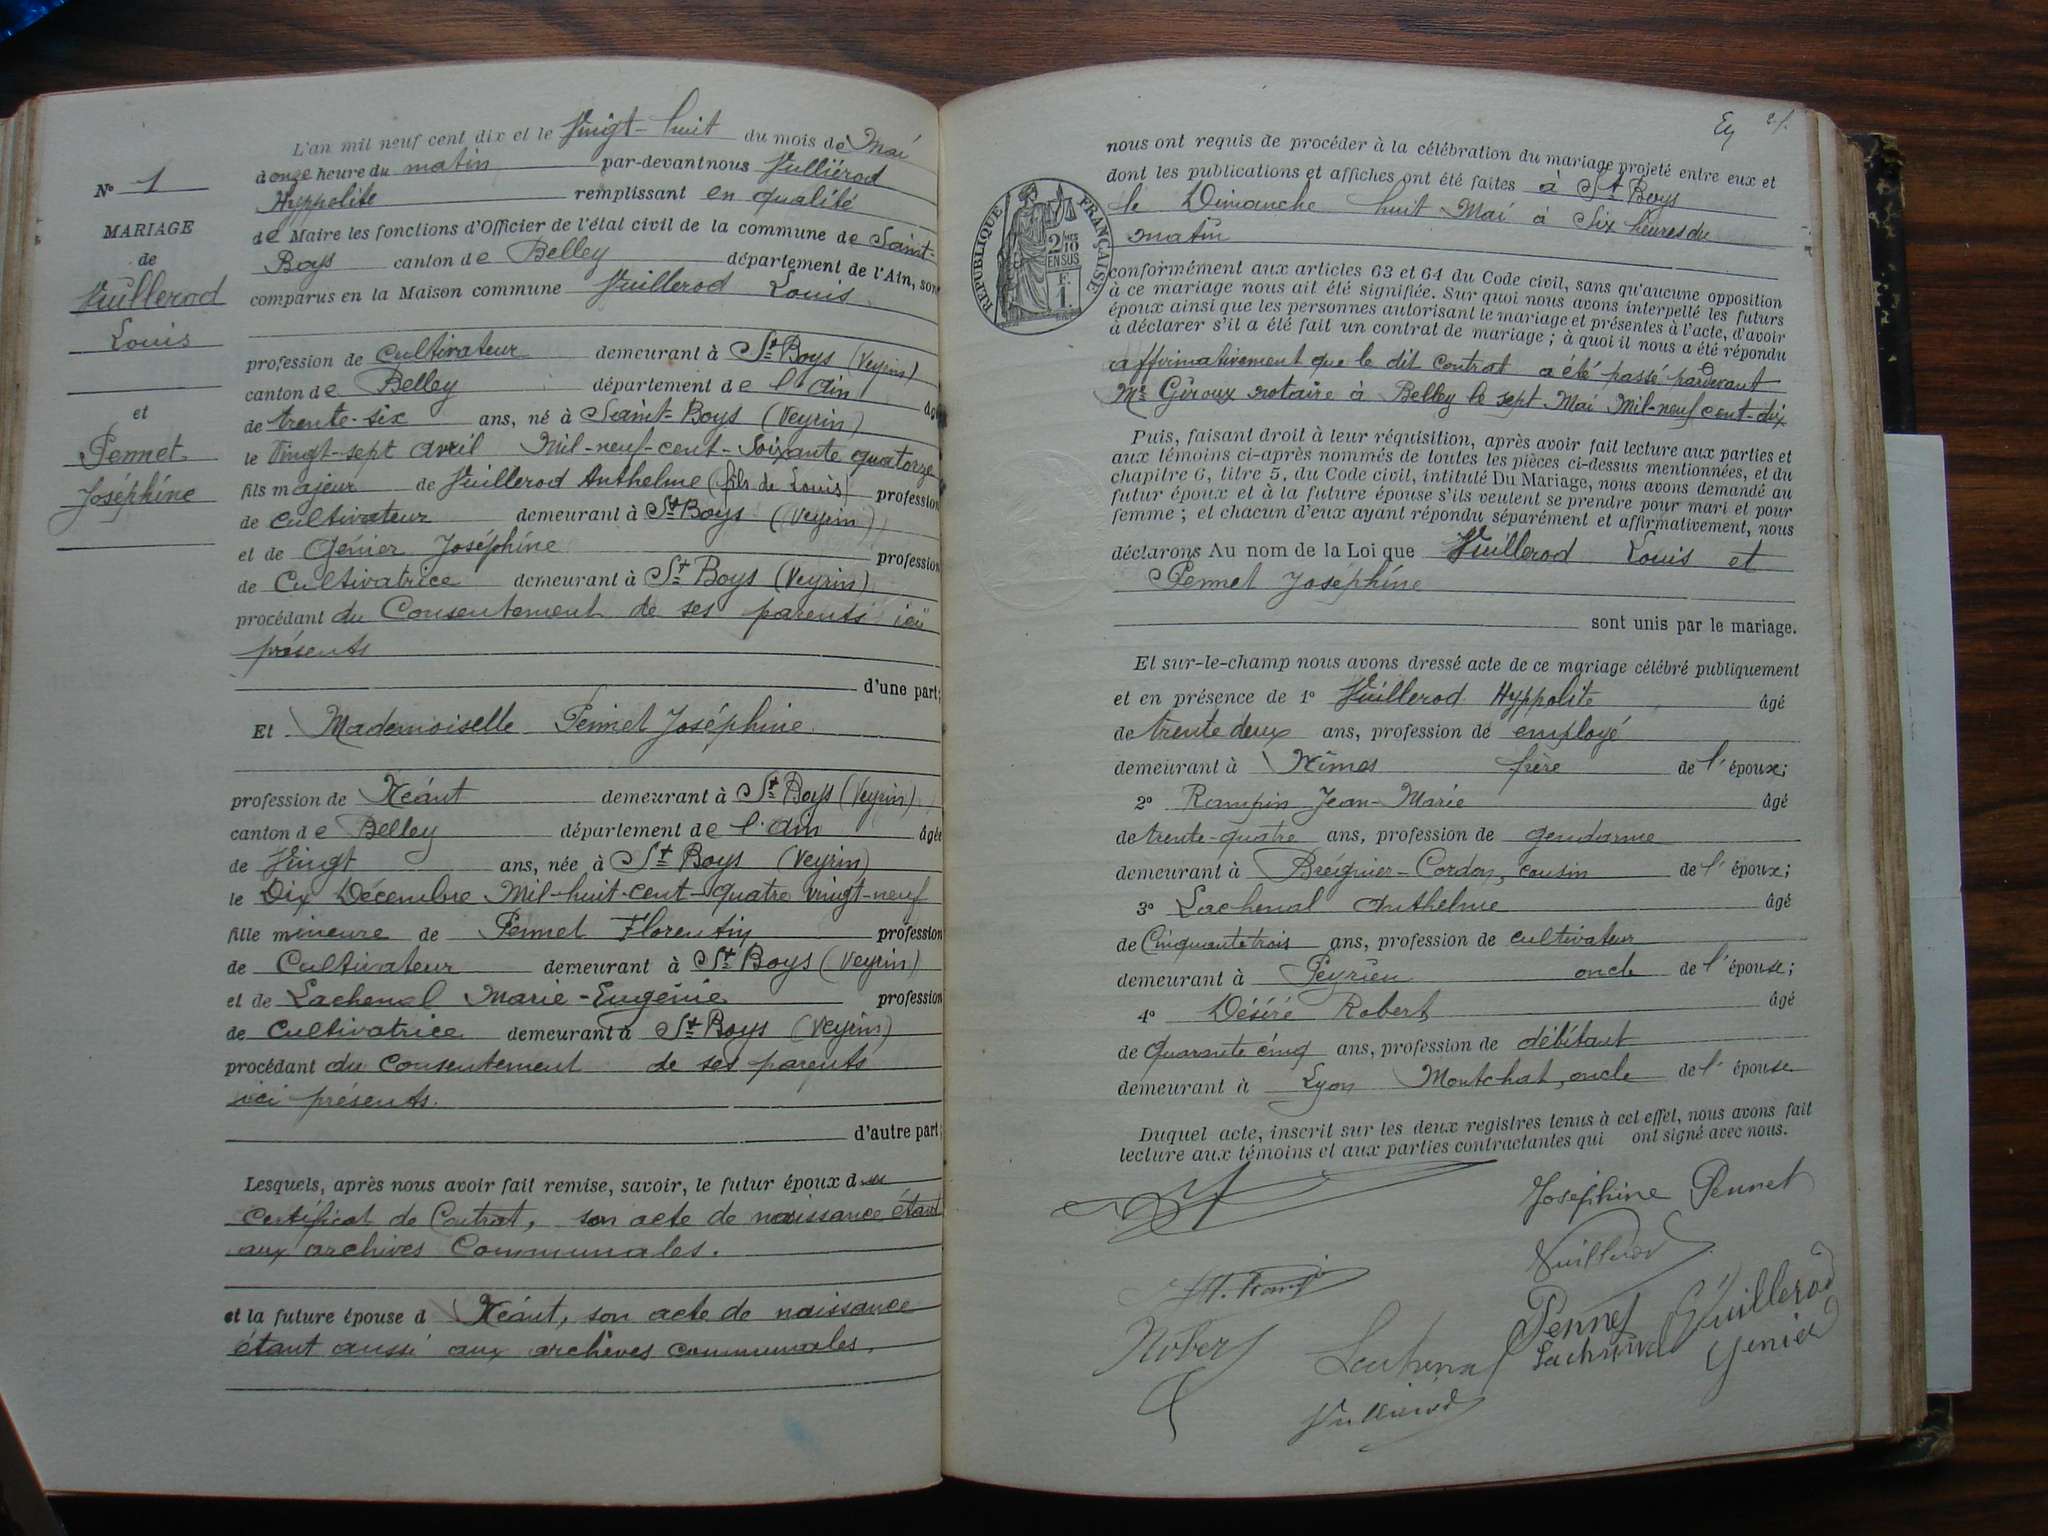 L'an mil neuf cent dix et le Vingt-huit du mois de Mai
à onze heure du matin par-devant nous Vulliérod
Hyppolite remplissant en qualité
de Maire les fonctions d'Officier de l'état civil de la commune de Saint-
Boys canton de Belley département de l'Ain, sont
comparus en la Maison commune Vuillerod Louis
N° 1
MARIAGE
de
Vuillerod
Louis
et
Pennet
Joséphine
profession de Cultivateur demeurant à St Boys (Veyrin)
canton de Belley département de l'Ain âgé
de trente-six ans, né à Saint-Boys (Veyrin)
le Vingt-sept avril Mil-neuf-cent-Soixante quatorze
fils majeur de Vuillerod Anthelme (fils de Louis) profession
de Cultivateur demeurant à St Boys (Veyrin)
et de Génier Joséphine profession
de Cultivatrice demeurant à St Boys (Veyrin)
procédant du Consentement de ses parents ici
présents
d'une part;
Et Mademoiselle Pennet Joséphine
profession de Néant demeurant à St Boys (Veyrin)
canton de Belley département de l'Ain âgée
de Vingt ans, née à St Boys (Veyrin)
le Dix Décembre Mil-huit-cent-quatre vingt-neuf
fille mineure de Pennet Florentin profession
de Cultivateur demeurant à St Boys (Veyrin)
et de Lachenal Marie-Eugénie profession
de Cultivatrice demeurant à St Boys (Veyrin)
procédant du Consentement de ses parents
ici présents.
d'autre part;
Lesquels, après nous avoir fait remise, savoir, le futur époux d'un
Certificat de Contrat, son acte de naissance étant
aux archives Communales.
et la future épouse d Néant, son acte de naissance
étant aussi aux archives communales.
21.
nous ont requis de procéder à la célébration du mariage projeté entre eux et
dont les publications et affiches ont été faites à St Boys
le Dimanche huit Mai à Six heures du
matin
RÉPUBLIQUE FRANÇAISE
2/10
EN SUS
F.
1.
conformément aux articles 63 et 64 du Code civil, sans qu'aucune opposition
à ce mariage nous ait été signifiée. Sur quoi nous avons interpellé les futurs
époux ainsi que les personnes autorisant le mariage et présentes à l'acte, d'avoir
à déclarer s'il a été fait un contrat de mariage ; à quoi il nous a été répondu
affirmativement que le dit contrat a été passé pardevant
Me Giroux notaire à Belley le sept Mai Mil-neuf cent-dix
Puis, faisant droit à leur réquisition, après avoir fait lecture aux parties et
aux témoins ci-après nommés de toutes les pièces ci-dessus mentionnées, et du
chapitre 6, titre 5, du Code civil, intitulé Du Mariage, nous avons demandé au
futur époux et à la future épouse s'ils veulent se prendre pour mari et pour
femme ; et chacun d'eux ayant répondu séparément et affirmativement, nous
déclarons Au nom de la Loi que Vuillerod Louis et
Pennet Joséphine
sont unis par le mariage.
Et sur-le-champ nous avons dressé acte de ce mariage célébré publiquement
et en présence de 1° Vuillerod Hyppolite âgé
de trente deux ans, profession de employé
demeurant à Nîmes frère de l'époux;
2° Rampin Jean-Marie âgé
de trente-quatre ans, profession de gendarme
demeurant à Brégnier-Cordon, cousin de l'époux;
3° Lachenal Anthelme âgé
de Cinquante trois ans, profession de cultivateur
demeurant à Peyrieu oncle de l'épouse;
4° Désiré Robert âgé
de Quarante cinq ans, profession de débitant
demeurant à Lyon Montchat, oncle de l'épouse
Duquel acte, inscrit sur les deux registres tenus à cet effet, nous avons fait
lecture aux témoins et aux parties contractantes qui ont signé avec nous.
Joséphine Pennet
Vuillerod
Pennet Vuillerod
Robert Lachenal Lachenal Genier
Vulliérod